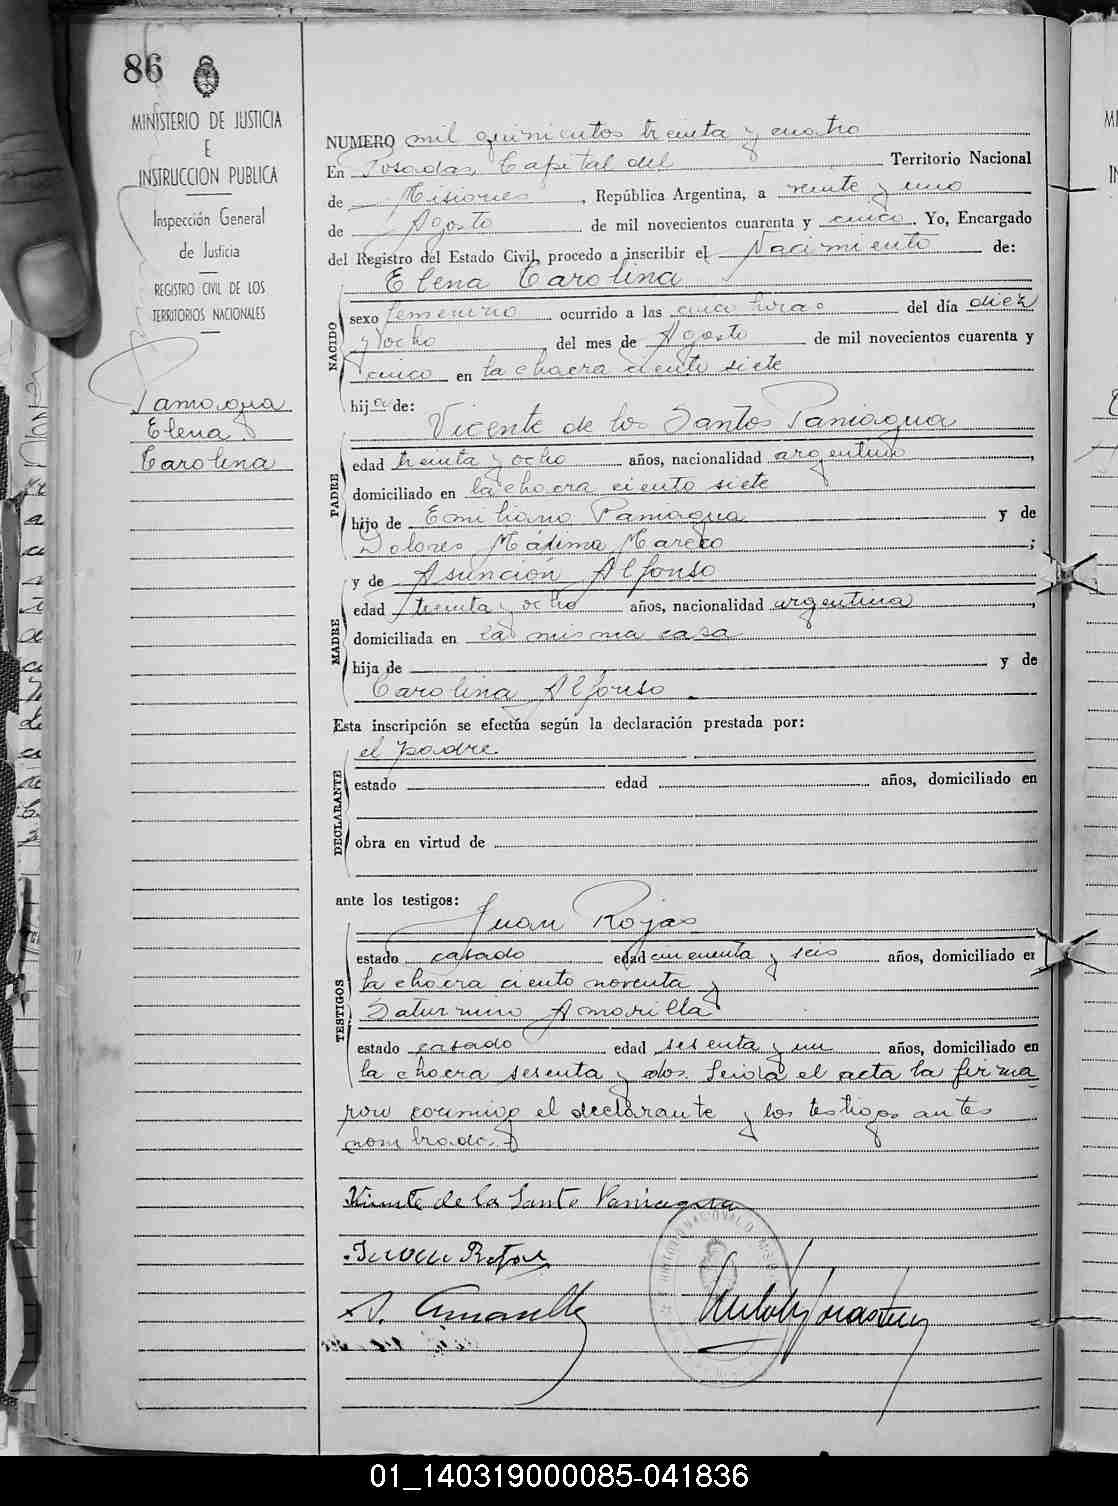 86
MINISTERIO DE JUSTICIA
E
INSTRUCCION PUBLICA
Inspección General
de Justicia
REGISTRO CIVIL DE LOS
TERRITORIOS NACIONALES
Pamagua
Elena
Carolina
NUMERO mil quinientos treinta y cuatro
En Posadas Capital del Territorio Nacional
de Misiones, República Argentina, a veinte y uno
de Agosto de mil novecientos cuarenta y cinco. Yo, Encargado
del Registro del Estado Civil, procedo a inscribir el Nacimiento de:
NACIDO
Elena Carolina
sexo femenino ocurrido a las cinco horas del día diez
y ocho, del mes de Agosto de mil novecientos cuarenta y
cinco en la chacra ciento siete
hija de:
PADRE
Vicente de los Santos Pamagua
edad treinta y ocho años, nacionalidad argentino,
domiciliado en la chacra ciento siete
hijo de Emiliano Pamagua y de
Dolores Máxima Mareco;
MADRE
y de Asunción Alfonso
edad treinta y ocho años, nacionalidad argentina,
domiciliada en la misma casa
hija de y de
Carolina Alfonso.
Esta inscripción se efectúa según la declaración prestada por:
DECLARANTE
el padre.
estado edad años, domiciliado en
obra en virtud de
ante los testigos:
TESTIGOS
Juan Rojas
estado casado edad cincuenta y seis años, domiciliado en
la chacra ciento noventa y
Saturnino Amarilla
estado casado edad sesenta y un años, domiciliado en
la chacra sesenta y dos. Leida el acta la firma-
ron conmigo el declarante y los testigos antes
nombrados.
Vicente de la Santo Paniagua
Juan Rojas
S. Amarilla
01_140319000085-041836